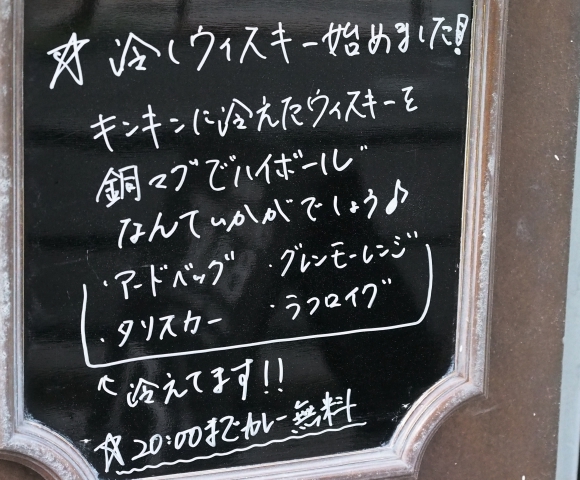 ☆ 冷しウィスキー始めました!
キンキンに冷えたウィスキーを
銅マグでハイボール
なんていかがでしょう♪
・アードベッグ ・グレンモーレンジ
・タリスカー ・ラフロイグ
↖ 冷えてます!!
☆20:00までカレー無料